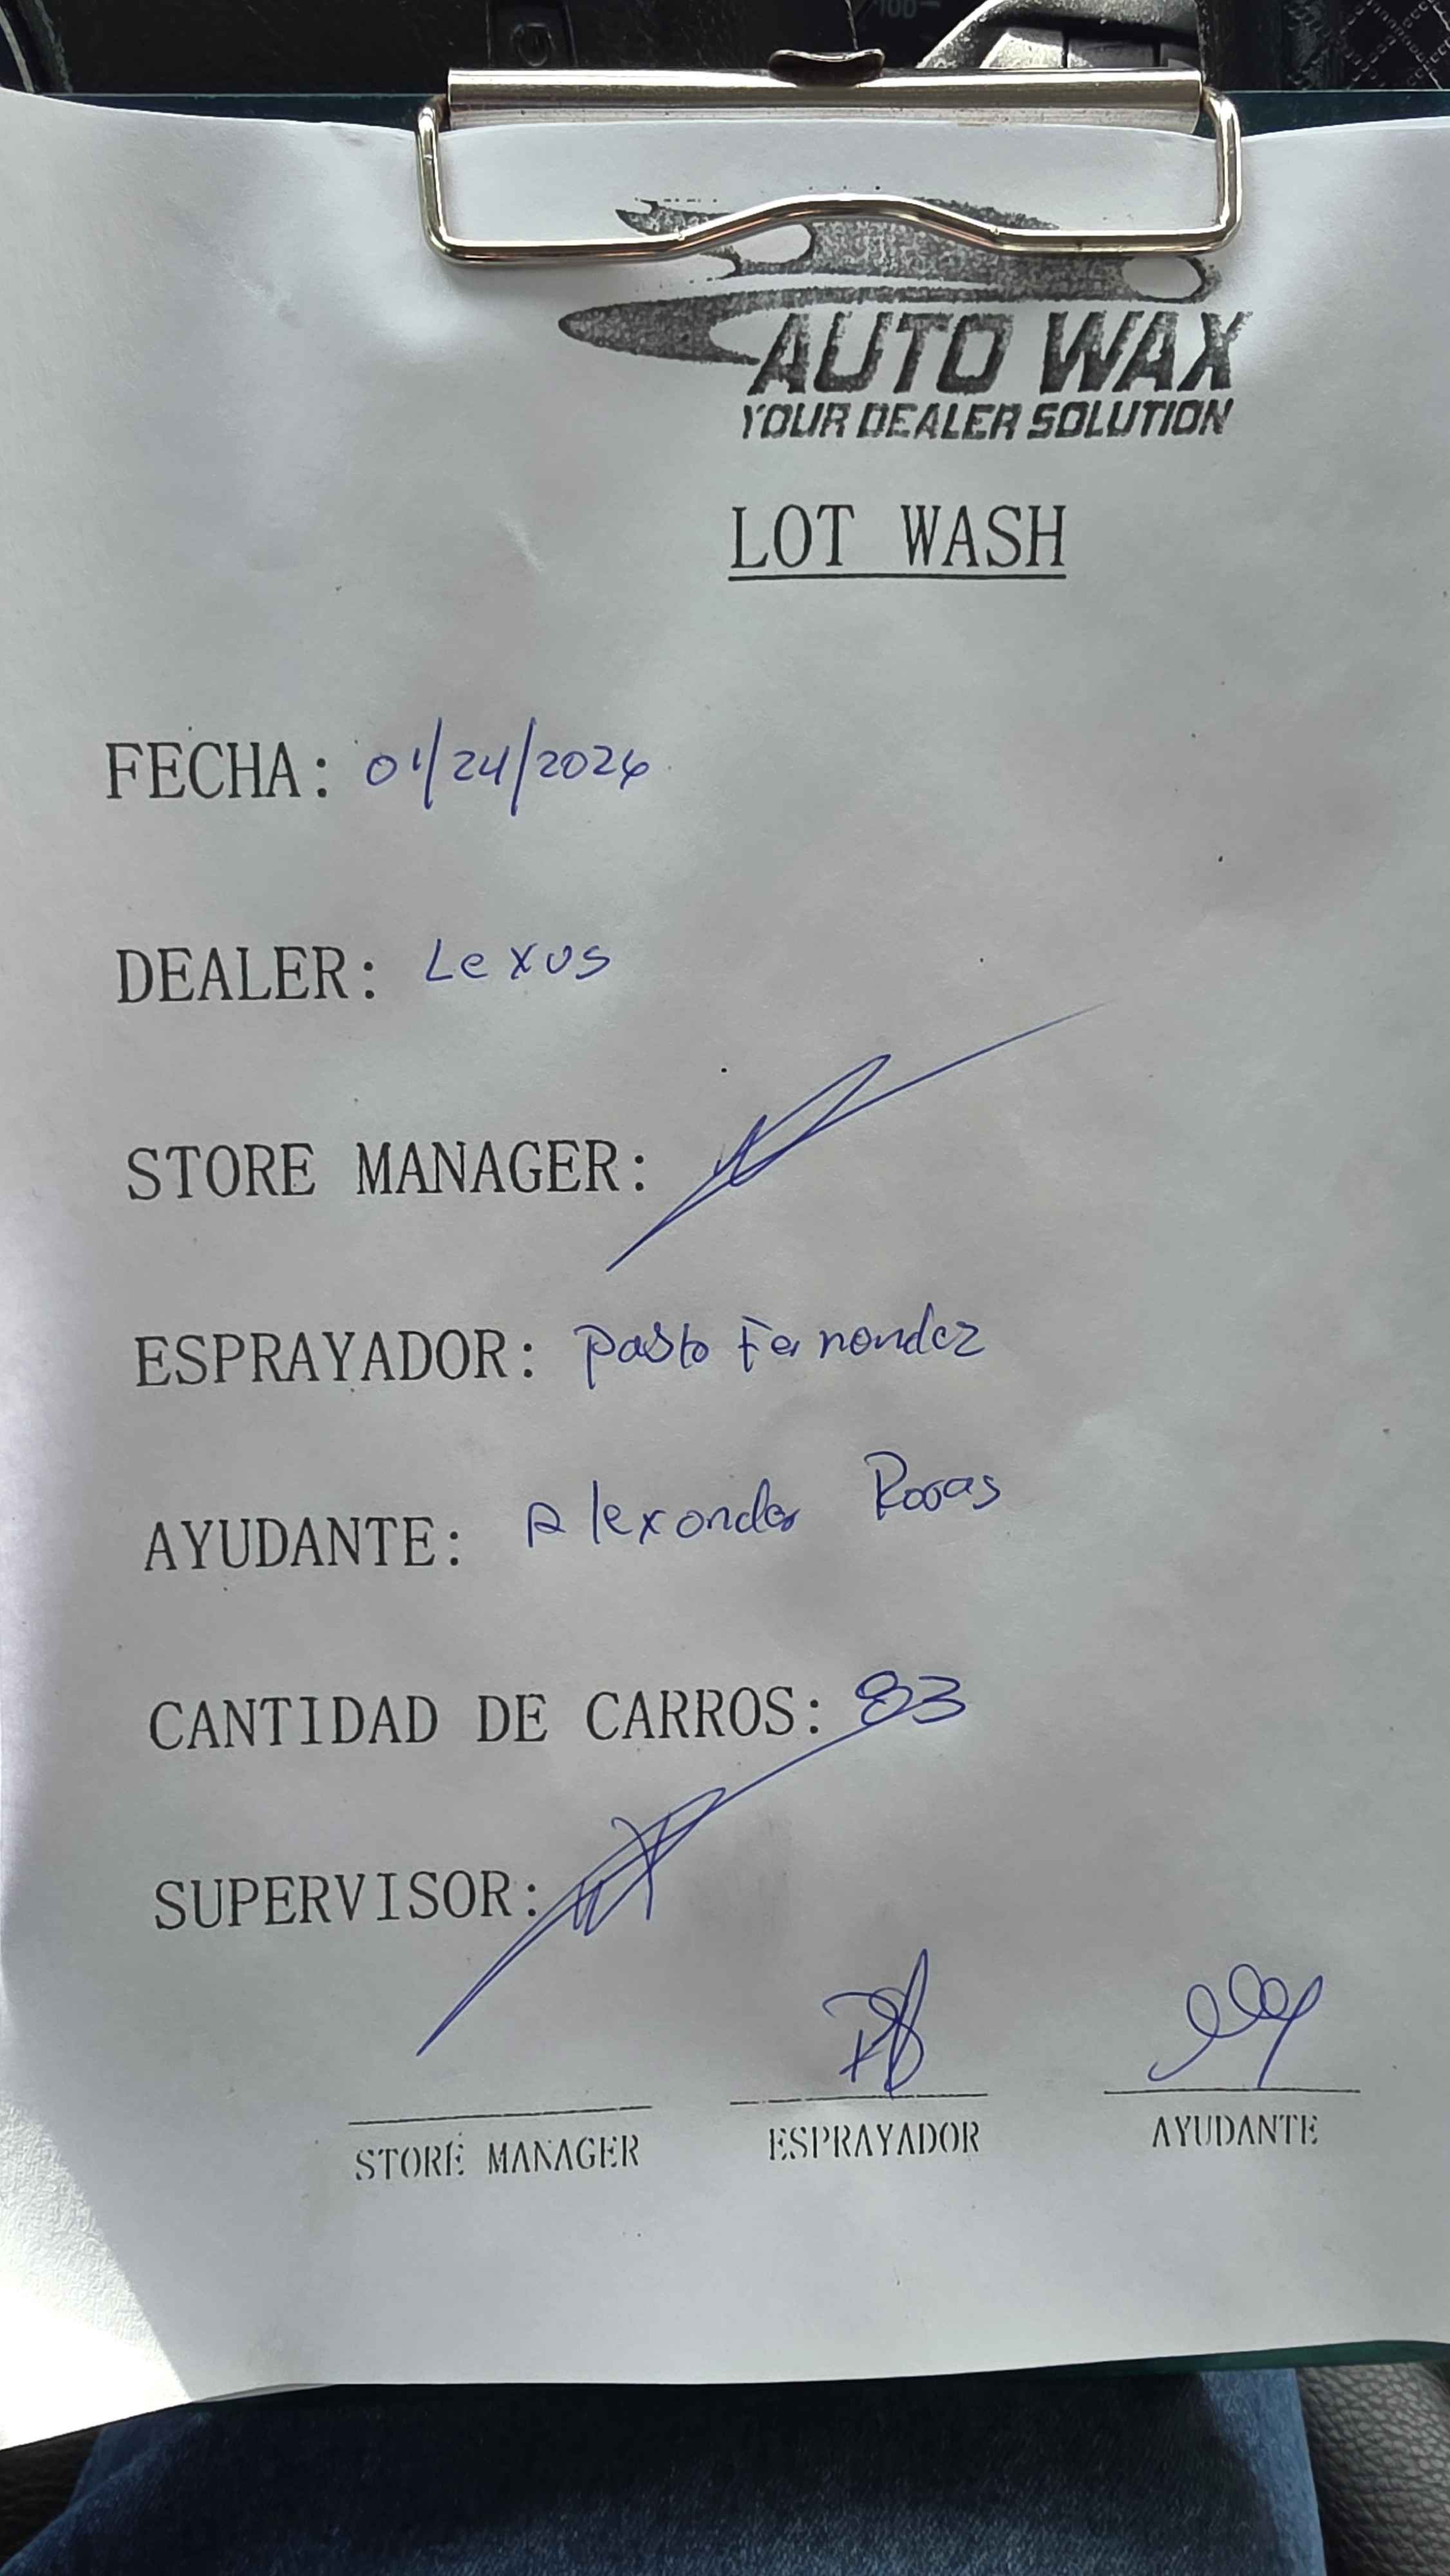 AUTO WAX
YOUR DEALER SOLUTION
LOT WASH
FECHA: 01/24/2026
DEALER: Lexus
STORE MANAGER:
ESPRAYADOR: Fernandez
AYUDANTE: Alexander Rosas
CANTIDAD DE CARROS: 83
SUPERVISOR:
STORE MANAGER ESPRAYADOR AYUDANTE